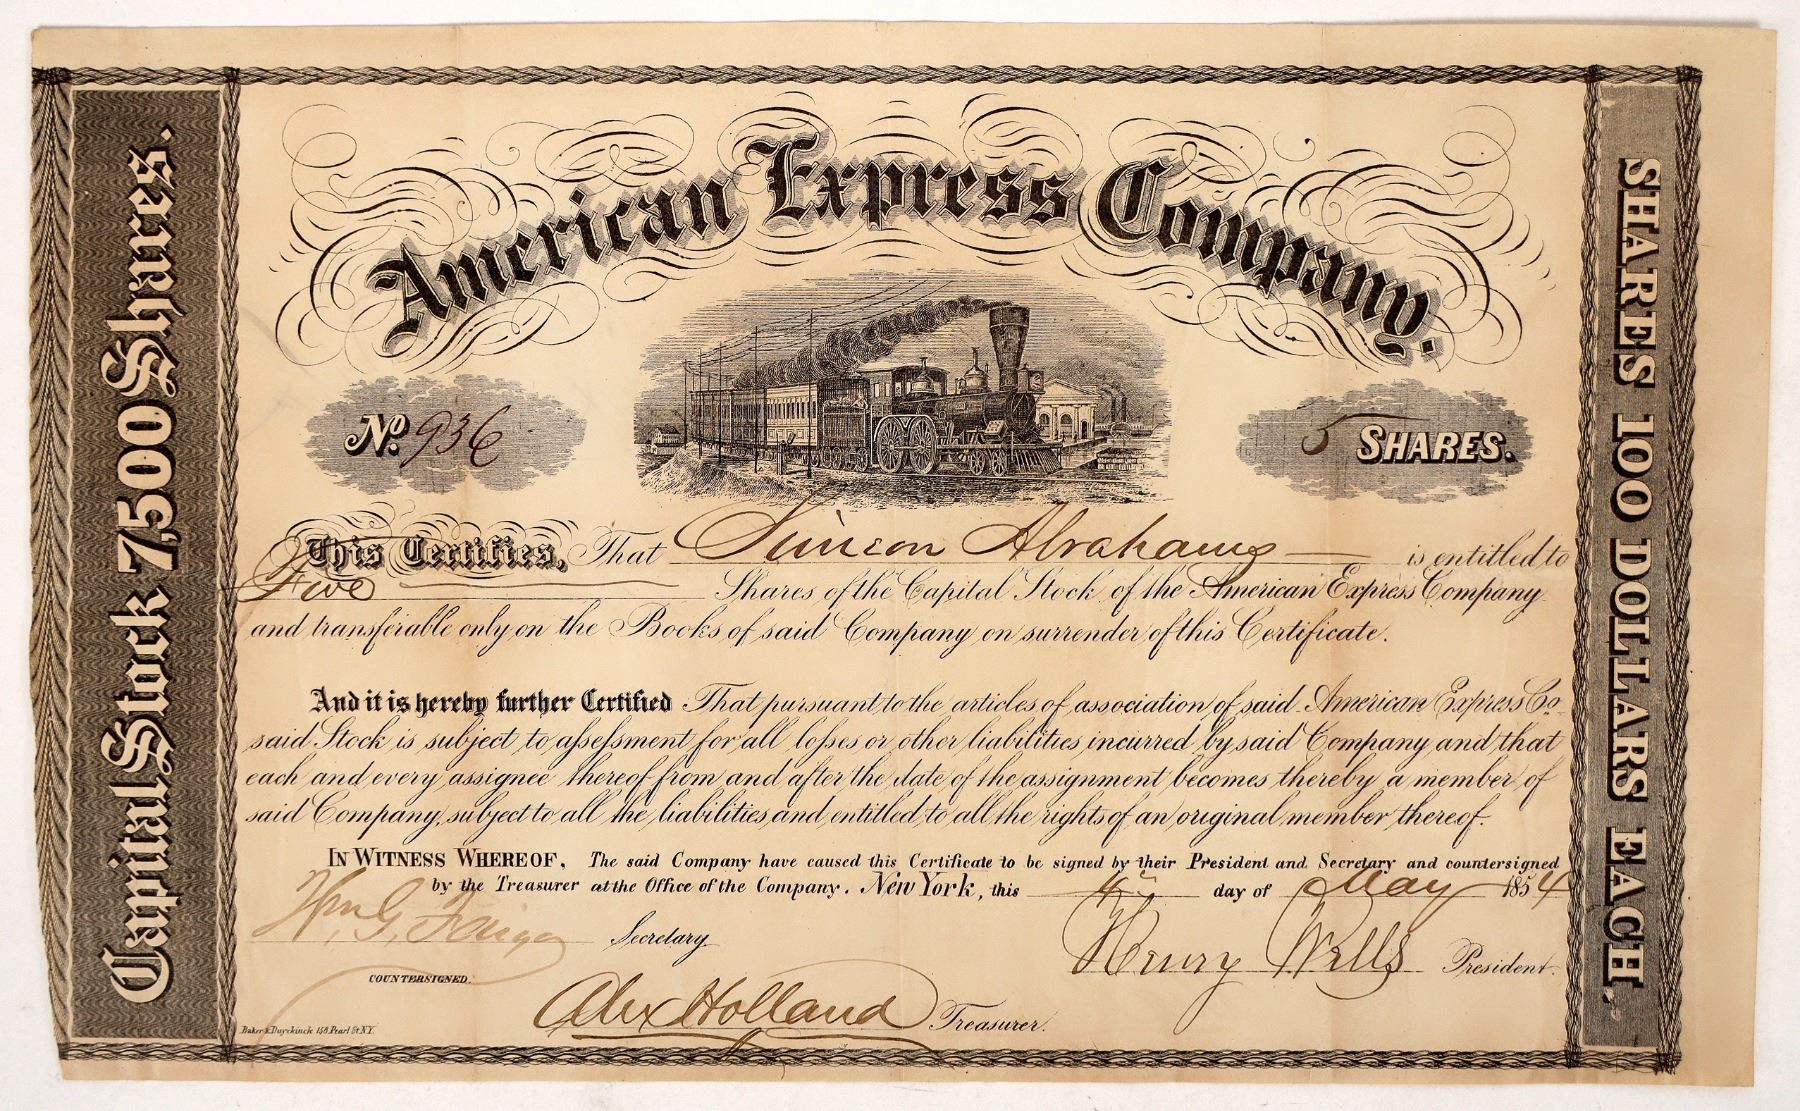 American Express Company.
Capital Stock 7,500 Shares.
SHARES 100 DOLLARS EACH.
No. 936
5 SHARES.
This Certifies, That Simeon Abrahams is entitled to
Five Shares of the Capital Stock of the American Express Company
and transferable only on the Books of said Company on surrender of this Certificate.
And it is hereby further Certified That pursuant to the articles of association of said American Express Co.
said Stock is subject to assessment for all losses or other liabilities incurred by said Company and that
each and every assignee thereof from and after the date of the assignment becomes thereby a member of
said Company, subject to all the liabilities and entitled to all the rights of an original member thereof.
IN WITNESS WHEREOF, The said Company have caused this Certificate to be signed by their President and Secretary and countersigned
by the Treasurer at the Office of the Company. New York, this 4th day of May 1854
Wm G. Fargo Secretary.
Henry Wells President.
COUNTERSIGNED.
Alex Holland Treasurer.
Baker & Duyckinck 158 Pearl St N.Y.